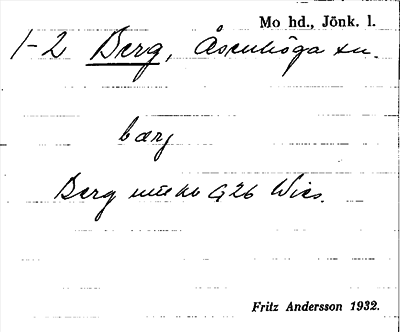 Mo hd., Jönk. l.
1-2 Berg, Åsenhöga sn.
bærj
Berg G26 Wies.
Fritz Andersson 1932.